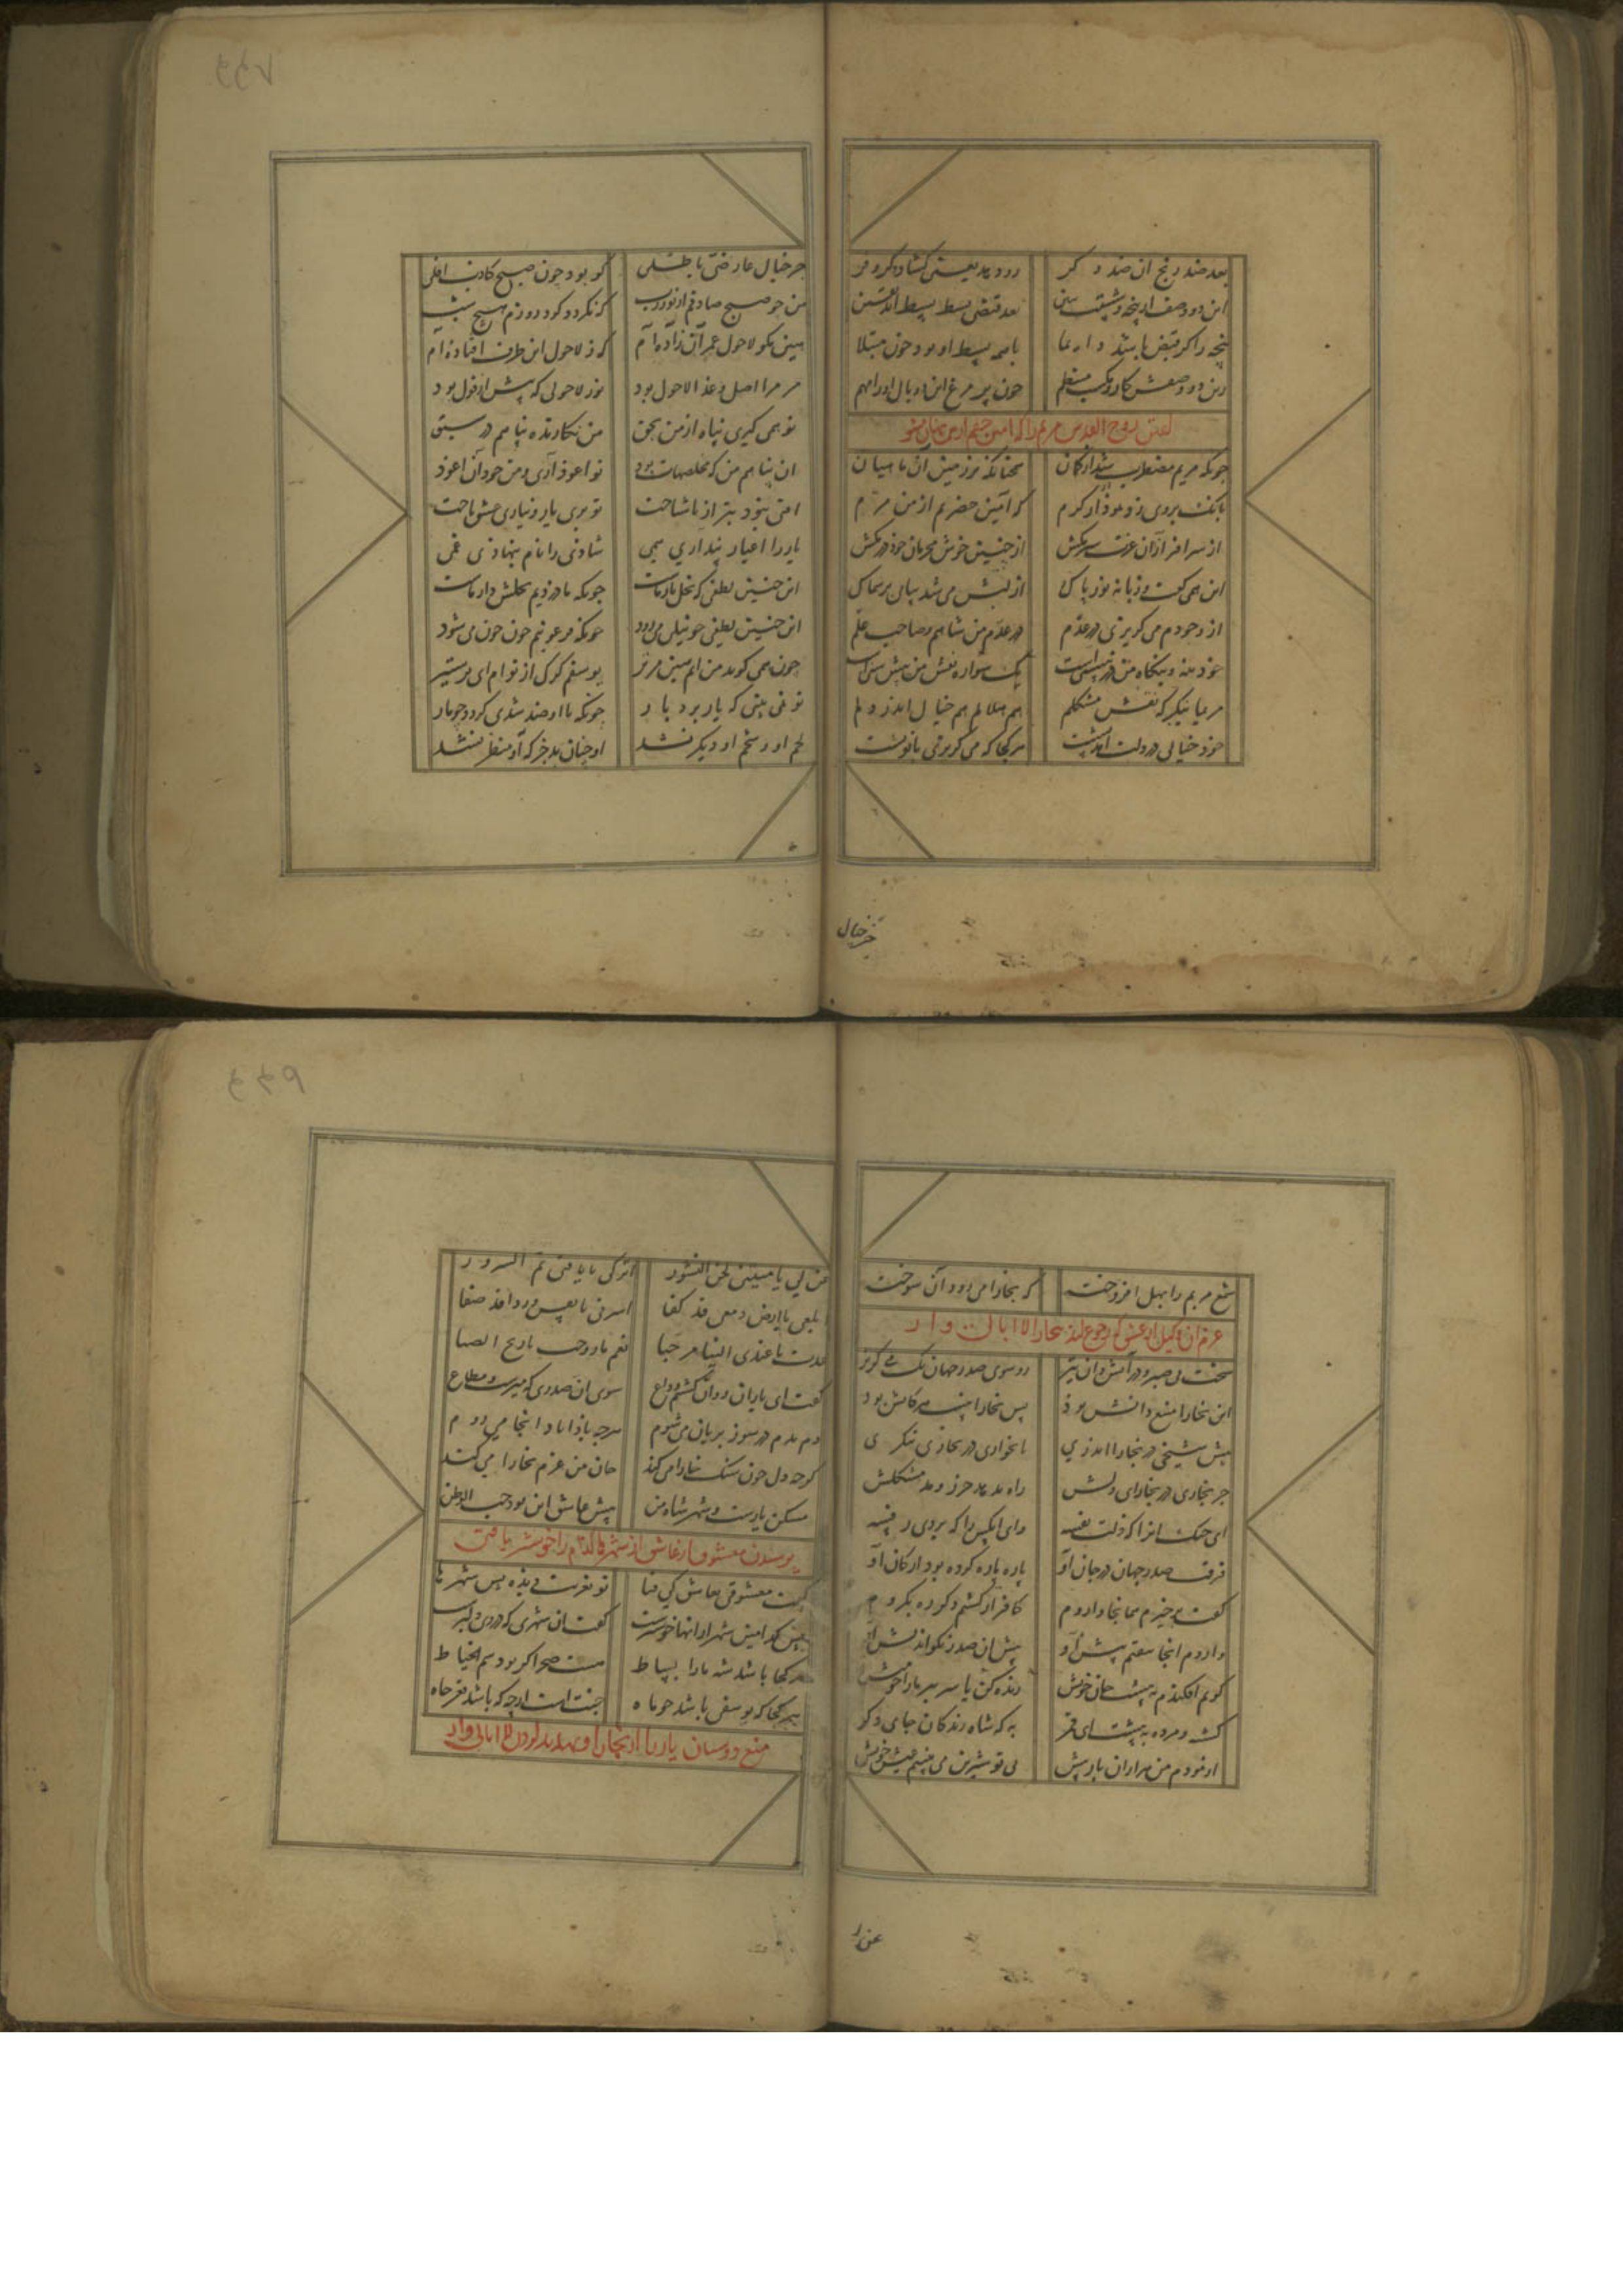 بعد ضد رنج آن ضد دگر رو دهد یعنی گشاد و کر و فر
این دو وصف از پنجه و دستت ببین بعد قبض بسط بسط آید یقین
پنجه را گر قبض باشد دایما یا همه بسط او بود چون مبتلا
زین دو وصفش کار و مکسب منتظم چون پر مرغ این دو بال او را مهم
گفتن روح القدس مریم را که
چونکه مریم مضطرب شد از کان همچنانکه بر زمین آن ماهیان
بانک بر وی زد نمودار کرم که امین حضرتم از من مرم
از سرافرازان عزت سر مکش از چنین خوش محرمان خود در مکش
این همی گفت و ذباله نور پاک از لبش می شد پیاپی بر سماک
از وجودم می گریزی در عدم در عدم من شاهم و صاحب علم
خود بنه و بنگاه من در نیستیست یک سواره نقش من پیش ستیست
مریما بنگر که نقش مشکلم هم هلالم هم خیال اندر دلم
چون خیالی در دلت آمد نشست هر کجا که می گریزی با توست
جز خیال
جز خیال عارضی باطلی کو بود چون صبح کاذب افلی
من چو صبح صادقم از نور رب که نگردد گرد روزم هیچ شب
هین مگو لاحول عمران زاده ام که ز لاحول این طرف افتاده ام
مر مرا اصل و غذا لاحول بود نور لاحولی که پیش از قول بود
تو همی گیری پناه از من بحق من نگارنده پناهم در سبق
آن پناهم من که مخلصهات بود تو اعوذ آری و من خود آن اعوذ
آفتی نبود بتر از ناشناخت تو بر یار و ندانی عشق باخت
یار را اغیار پنداری همی شادئی را نام بنهادی غمی
این چنین نخلی که لطف یار ماست چونکه ما دزدیم نخلش دار ماست
این چنین لطفی چو نیلی می رود چونکه فرعونیم چون خون می شود
خون همی گوید من آبم هین مریز یوسفم گرگ از توام ای پر ستیز
تو نمی بینی که یار بردبار چونکه با او ضد شدی گردد چو مار
لحم او و شحم او دیگر نشد او چنان بد جز که از منظر نشد
شمع مریم را بهل افروخته که بخارا می رود آن سوخته
عزم آن وکیل از عشق که رجوع کند بخارا لاابالی وار
سخت بی صبر و در آتشدان تیز رو سوی صدر جهان می کن گریز
این بخارا منبع دانش بود پس بخاراییست هر کآنش بود
پیش شیخی در بخارا اندری تا بخواری در بخارا ننگری
جز بخواری در بخارای دلش راه ندهد جزر و مد مشکلش
ای خنک آنرا که ذلت نفسه وای آنکس را که یردی رفسه
فرقت صدر جهان در جان او پاره پاره کرده بود ارکان او
گفت برخیزم همانجا وا روم کافر ار گشتم دگر ره بگروم
وا روم آنجا بیفتم پیش او پیش آن صدر نکواندیش او
گویم افکندم به پیشت جان خویش زنده کن یا سر ببر ما را چو میش
کشته و مرده به پیشت ای قمر به که شاه زندگان جای دگر
آزمودم من هزاران بار بیش بی تو شیرین می نبینم عیش خویش
عن ل
غن لی یا منیتی لحن النشور ابرکی یا ناقتی تم السرور
ابلعی یا ارض دمعی قد کفا اشربی یا نفس وردا قد صفا
عدت یا عیدی الینا مرحبا نعم ما روحت یا ریح الصبا
گفت ای یاران روان گشتم وداع سوی آن صدری که میرست و مطاع
دم بدم در سوز بریان می شوم هرچه بادا باد آنجا می روم
گرچه دل چون سنگ خارا می کند جان من عزم بخارا می کند
مسکن یارست و شهر شاه من پیش عاشق این بود حب الوطن
پرسیدن معشوق از عاشق از شهرها کدام را خوشتر یافتی
گفت معشوقی بعاشق کای فتا تو بغربت دیده بس شهرها
پس کدامین شهر از آنها خوشترست گفت آن شهری که در وی دلبرست
هر کجا باشد شه ما را بساط هست صحرا گر بود سم الخیاط
هر کجا که یوسفی باشد چو ماه جنت است ارچه که باشد قعر چاه
منع دوستان یار را از بخارا و تهدید کردن لاابالی وار